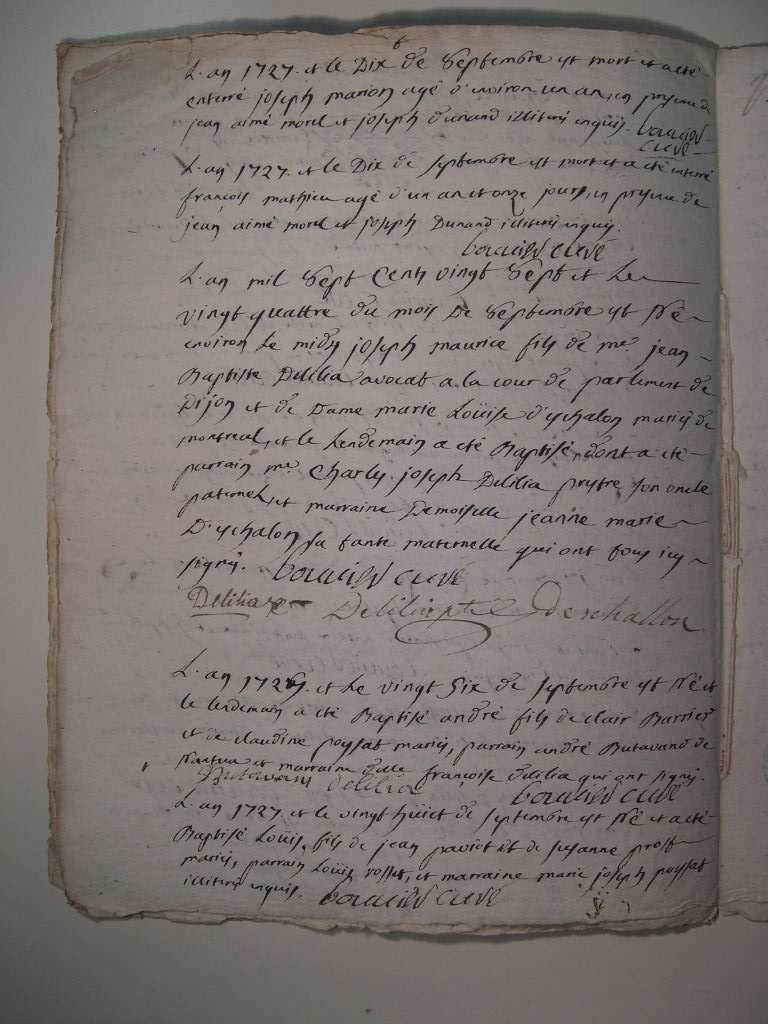 L'an 1727. et le Dix de Septembre est mort et a eté
enterré joseph marion agé d'environ un an, en presence de
jean aimé morel et joseph Dunand illiterés enquis.
curé
L'an 1727. et le Dix de septembre est mort et a eté enterré
françois mathieu agé d'un an et onze jours, en presence de
jean aimé morel et joseph Dunand illiterés enquis.
curé
L'an mil Sept Cents vingt Sept et Le
vingt quattre du mois De Septembre est Né
environ Le midy joseph maurice fils de me. jean
Baptiste Delilia avocat a la cour de parlement de
Dijon et de Dame marie Loüise d'Eschalon mariés de
montreal, et le Lendemain a eté Baptisé, dont a eté
parrain me. Charles joseph Delilia prestre son oncle
paternel, et marraine Demoiselle jeanne marie
D'eschalon sa tante maternelle qui ont tous icy
signés. curé
Delilia Delilia ptre Deschallon
L'an 1727. et Le vingt Six de septembre est Né et
le lendemain a eté Baptisé andré fils de clair Barrier
et de claudine poysat mariés, parrain andré Butavand de
Nantua et marraine dlle françoise delilia qui ont signés.
Butavand delilia curé
L'an 1727. et le vingt huict de septembre est Né et a eté
Baptisé Loüis, fils de jean paviot et de susanne prost
mariés, parrain Loüis rosset, et marraine marie joseph poysat
illiterés enquis. curé